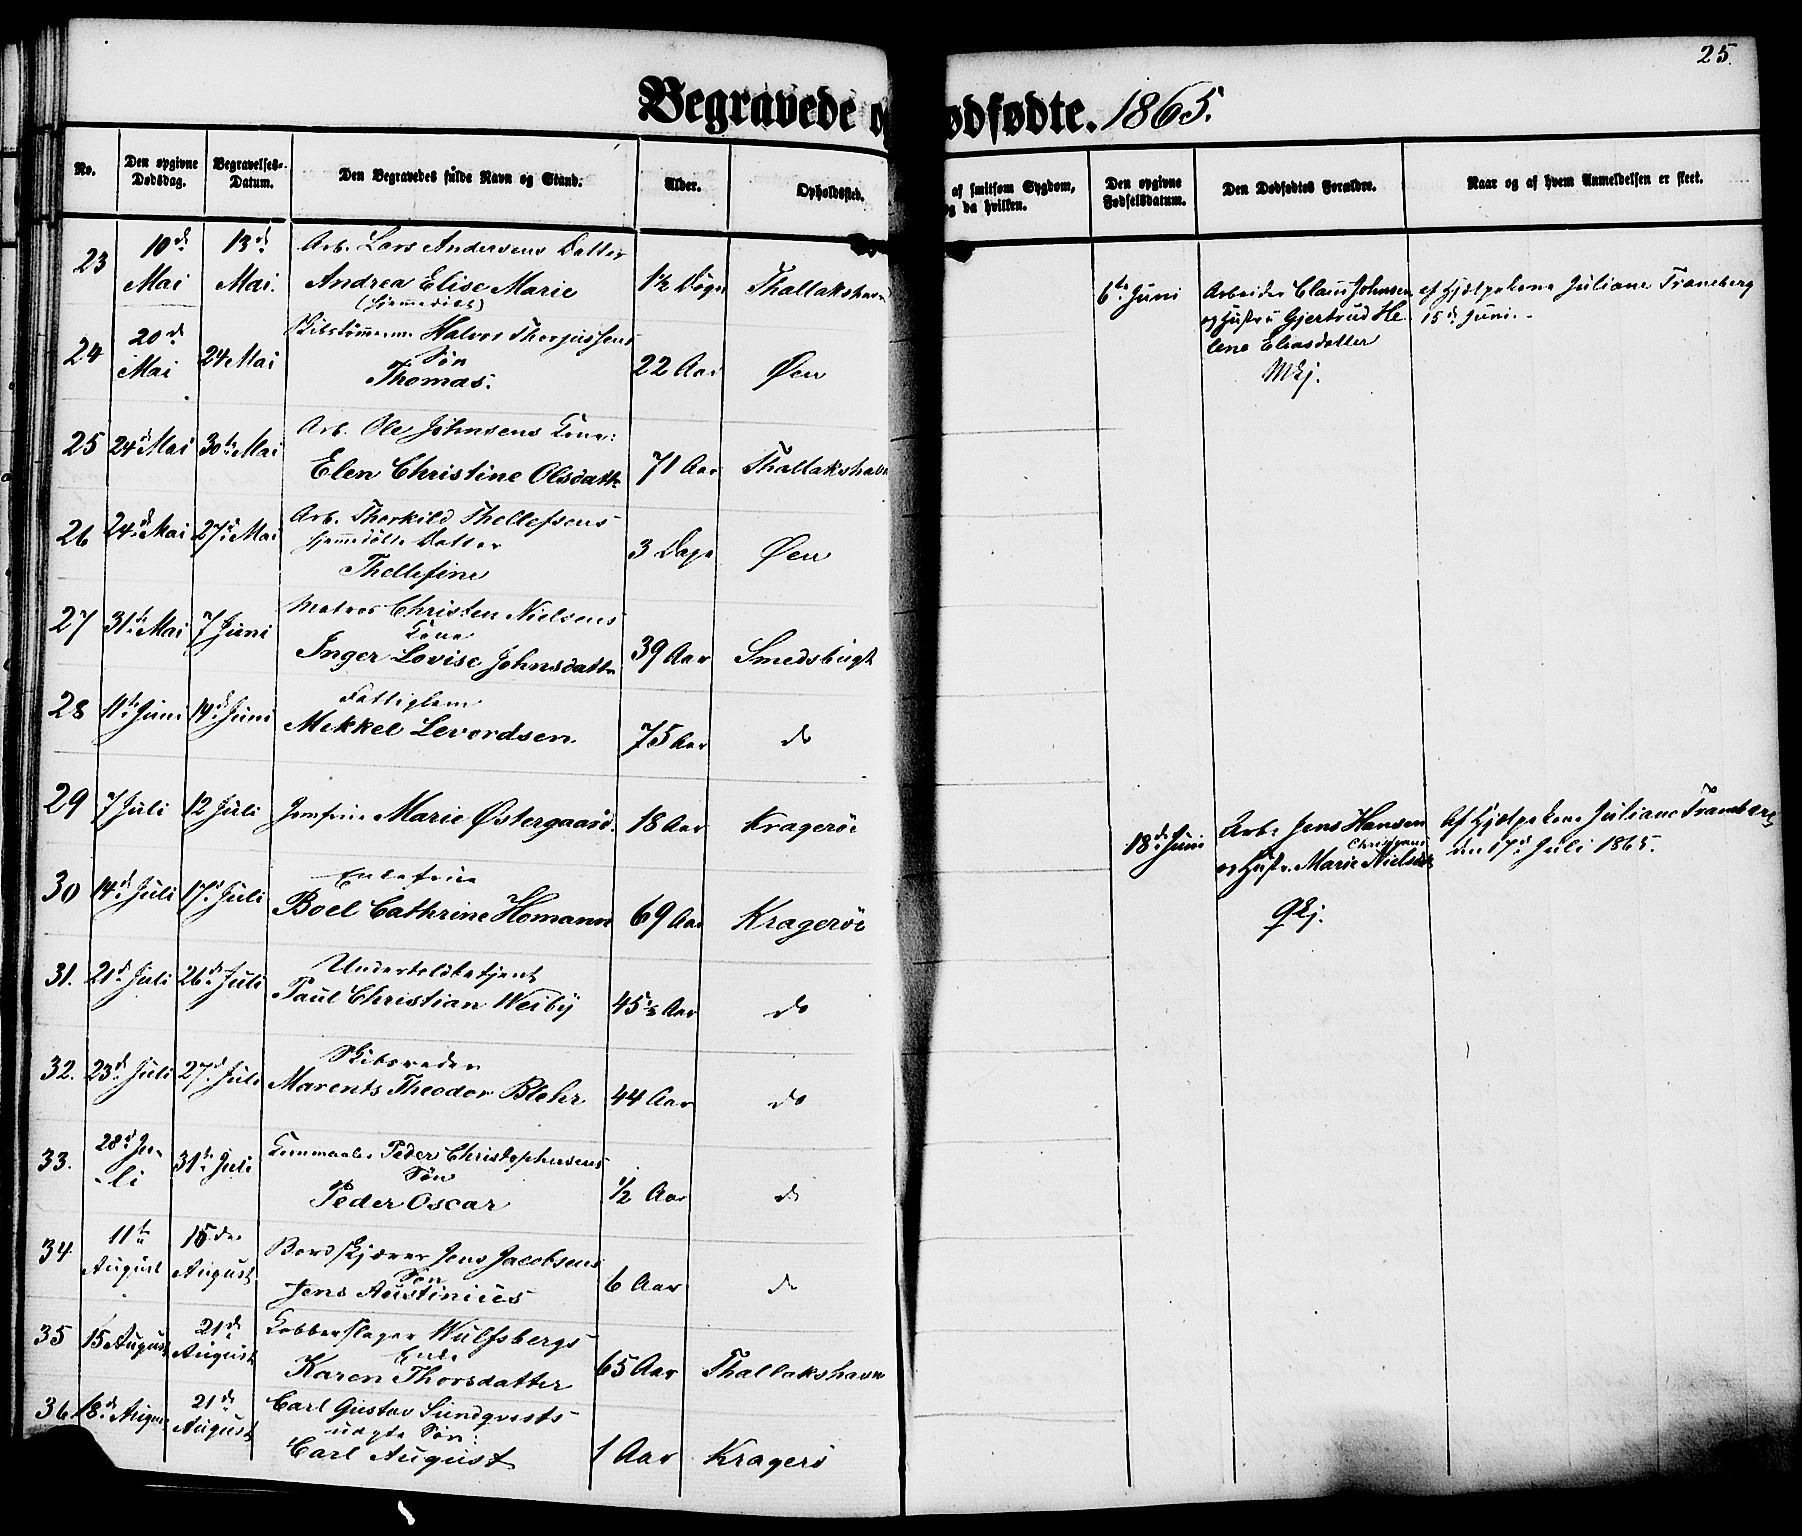 25.
Begravede og Dødfødte. 1865.
No.
Den opgivne Dødsdag.
Begravelses-Datum.
Den Begravedes fulde Navn og Stand.
Alder.
Opholdssted.
af smitsom Sygdom, og da hvilken.
Den opgivne Fødselsdatum.
Den Dødfødtes Forældre.
Naar og af hvem Anmeldelsen er skeet.
23 10de Mai 13de Mai. Arb. Lars Andersens Datter
Andrea Elise Marie
(hjemmedøbt)
1½ Døgn Thallakshavn
24 20de Mai 24 Mai Halvor Thorjussens
Søn
Thomas.
22 Aar Øen
25 24de Mai 30te Mai Arb. Ole Johnsens Kone:
Elen Christine Olsdattr
71 Aar Thallakshavn
26 24de Mai 27de Mai Arb. Thorkild Thellefsens
hjemmedøbte Datter
Thellefine
3 Dage Øen
27 31te Mai 7 Juni Matros Christen Nielsens
Kone
Inger Lovise Johnsdattr
39 Aar Smedsbugt
28 11te Juni 14de Juni Fattiglem
Mekkel Levordsen
75 Aar do
29 7 Juli 12 Juli Jomfrue Marie Østergaard. 18 Aar Kragerøe
30 14de Juli 17de Juli Enkefrue
Boel Cathrine Homann
69 Aar Kragerøe
31. 21de Juli 26de Juli Undertoldbetjent
Paul Christian Weiby
45½ Aar do
32. 23de Juli 27de Juli Skibsreder
Marents Theodor Blehr
44 Aar do
33. 28de Ju-
-li
31te Juli Peder Christophersens
Søn
Peder Oscar
½ Aar do
34 11te August 15de August Bordskjærer Jens Jacobsens
Søn
Jens Austinius
6 Aar do
35 15 August 21de August Kobberslager Wulfsbergs
Enke
Karen Thorsdatter
65 Aar Thallakshavn
36 18de August 21de August Carl Gustav Sundqvists
uægte Søn:
Carl August
1 Aar Kragerö
6te Juni
Arbeider Claus Johnsen
og Hustru Gjertrud He-
lene Eliasdatter
Mkj.
af Hjælpekone Juliane Traneberg
15de Juni.
18de Juni
Arb. Jens Hansen
og Hustr. Marie Christiane Nielsdtr
Qkj.
Af Hjælpekone Juliane Traneberg
den 17de Juli 1865.